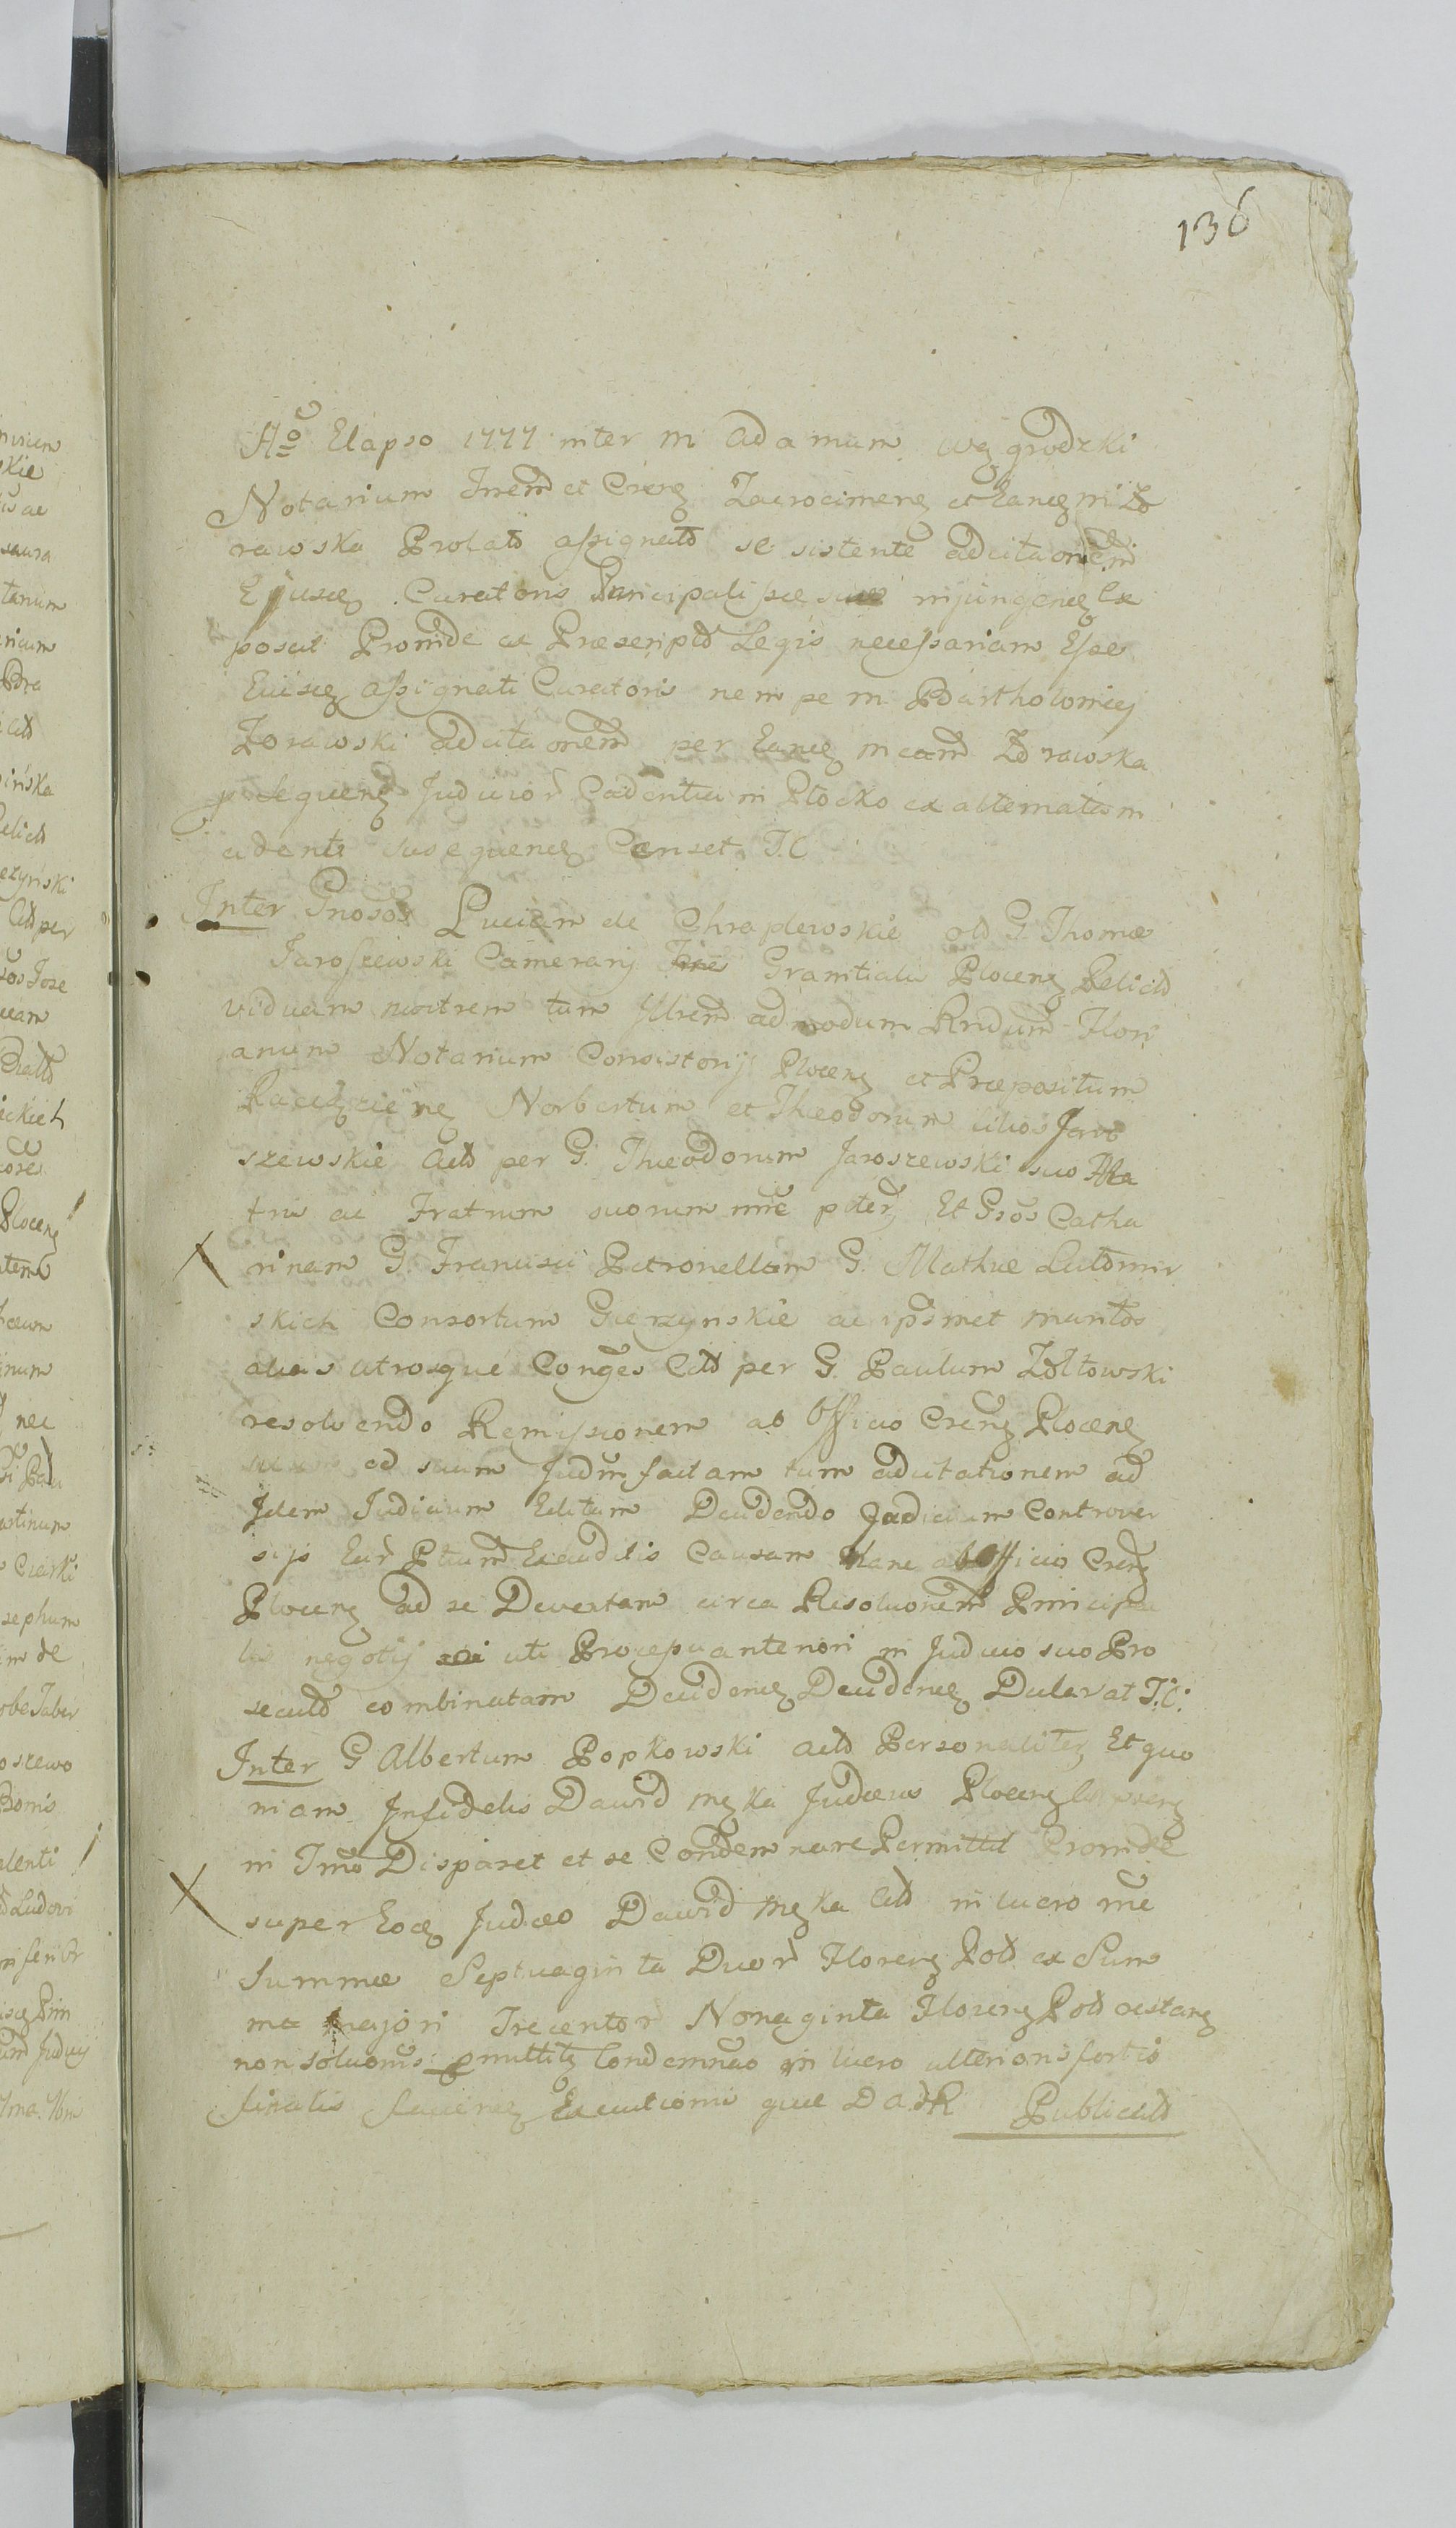 136
Aõ Elapso 1777 inter m Adamum Węgrodzki
Notarium Trrem et Crens Zacrocimens et Eandem m Żo
rawska Prolato assignato se sistente adcitaonem
Ejusdem Curatoris Principali suae injungendg Ex
posuit Proinde ex Praescripto Legis necessariam Esse
Eiusdem assignati Curatoris nempe m Bartholomiej
Żorawski adcitaonem per Eandem meam Żorawska
pro sequens Judicior Cadentia in Płocko ex alternatam
cidente susequendg Censet T.C
Inter Gnosos Luciam de Chraplewskie olo G. Thomae
Jaroszewski Camerarij Granitialis Plocens Relicto
viduam matrem tum Illrem admodum Rndum Flori
anum Notarium Consistorij Plocens et Praepositum
Norbertum et Theodorum filios Jaro
szewskie Acto per G. Theodorum Jaroszewski suo Ma
tris ac Fratrum suorum nne pcter Et Gsos Catha
rinam G. Francisci Petronellam G. Mathiae Lutomir
skich Consortum Gierzynskie ac ipsmet maritos
alias utrosque Conges Cito per G. Paulum Żółtowski
resolvendo Remissionem ab Officio Crens Plocens
ad suum Judm factam tum adcitationem ad
Idem Judicium Editam Decidendo Judicium Controver
sijs Ear Ptium Exauditis Causam Hanc ab Officio Crens
Plocens ad se Devectam circa Resoluonem Principa
lis negotij uti Processu anteriori in Judicio suo Pro
secuto combinatam Decidendg Decidendg Declarat T.C.
Inter G Albertum Popkowski acto Personaliter Et quo
niam Infidelis Dawid męka Judaeus Plocens
in Tmo Disparet et se Condemnare Permittit Proinde
super Eodem Judaeo Dawid męka Cito in lucro rne
Summae Septuaginta Duor Florens Polo ex Sum
ma majori Trecentor Nonaginta Florens Polo restans
non soluonis pmittit Condemnao in lucro ulterioris fortio
finalis faciendg Executionis quae D ad R Publicato